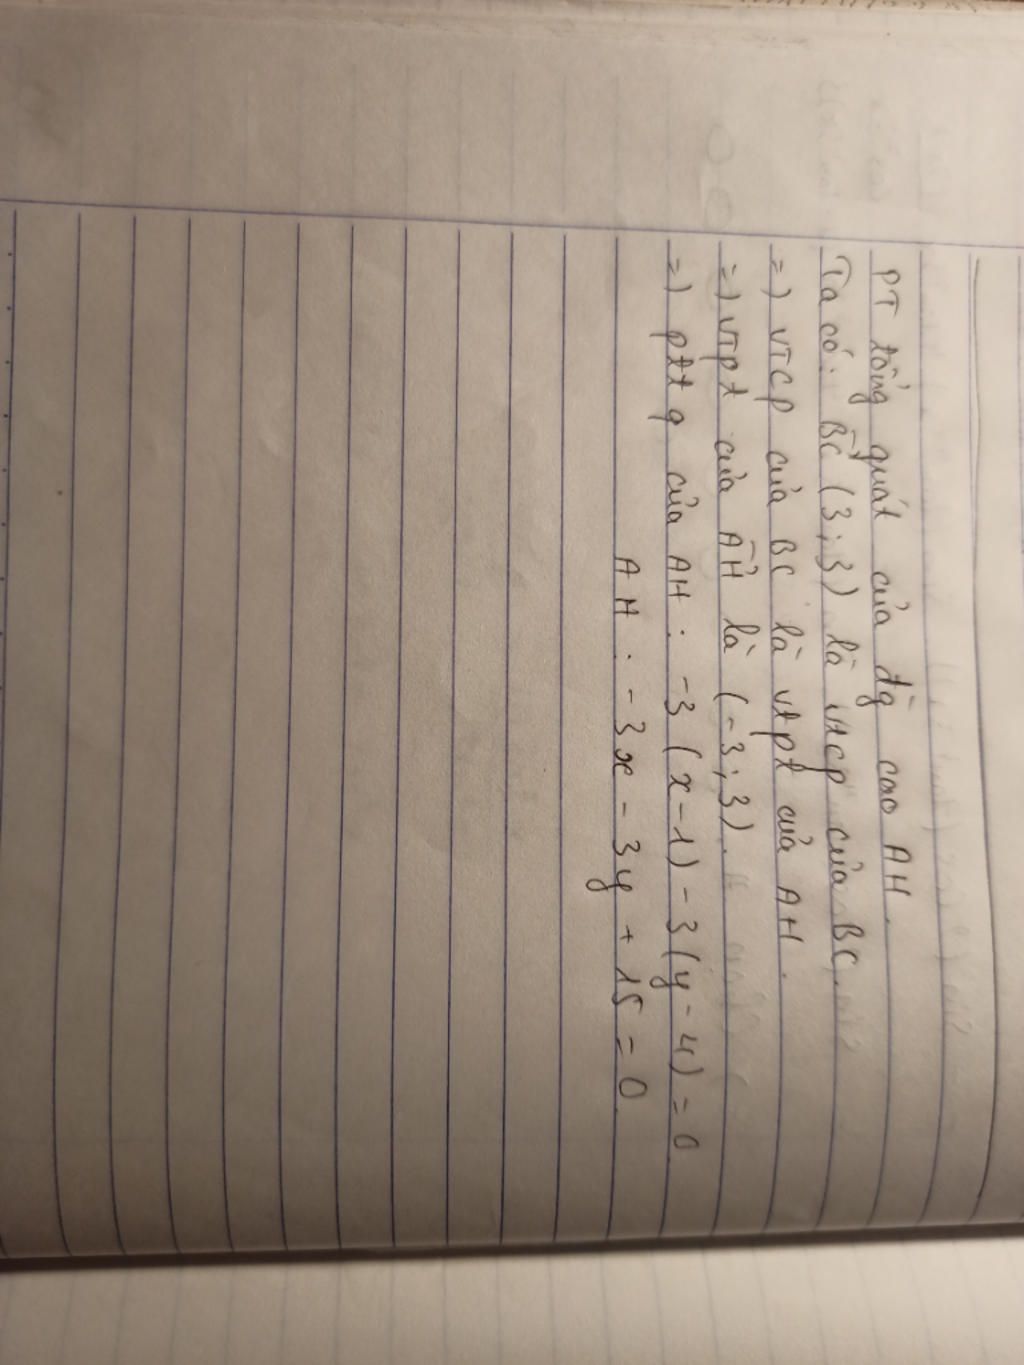 PT tổng quát của đg cao AH.
Ta có: BC (3;3) là vtcp của BC.
=) VTCP của BC là vtpt của AH.
=) VTpt của AH là (-3;3).
=) pttq của AH: -3(x-1)-3(y-4)=0
AH: -3x-3y+15=0.